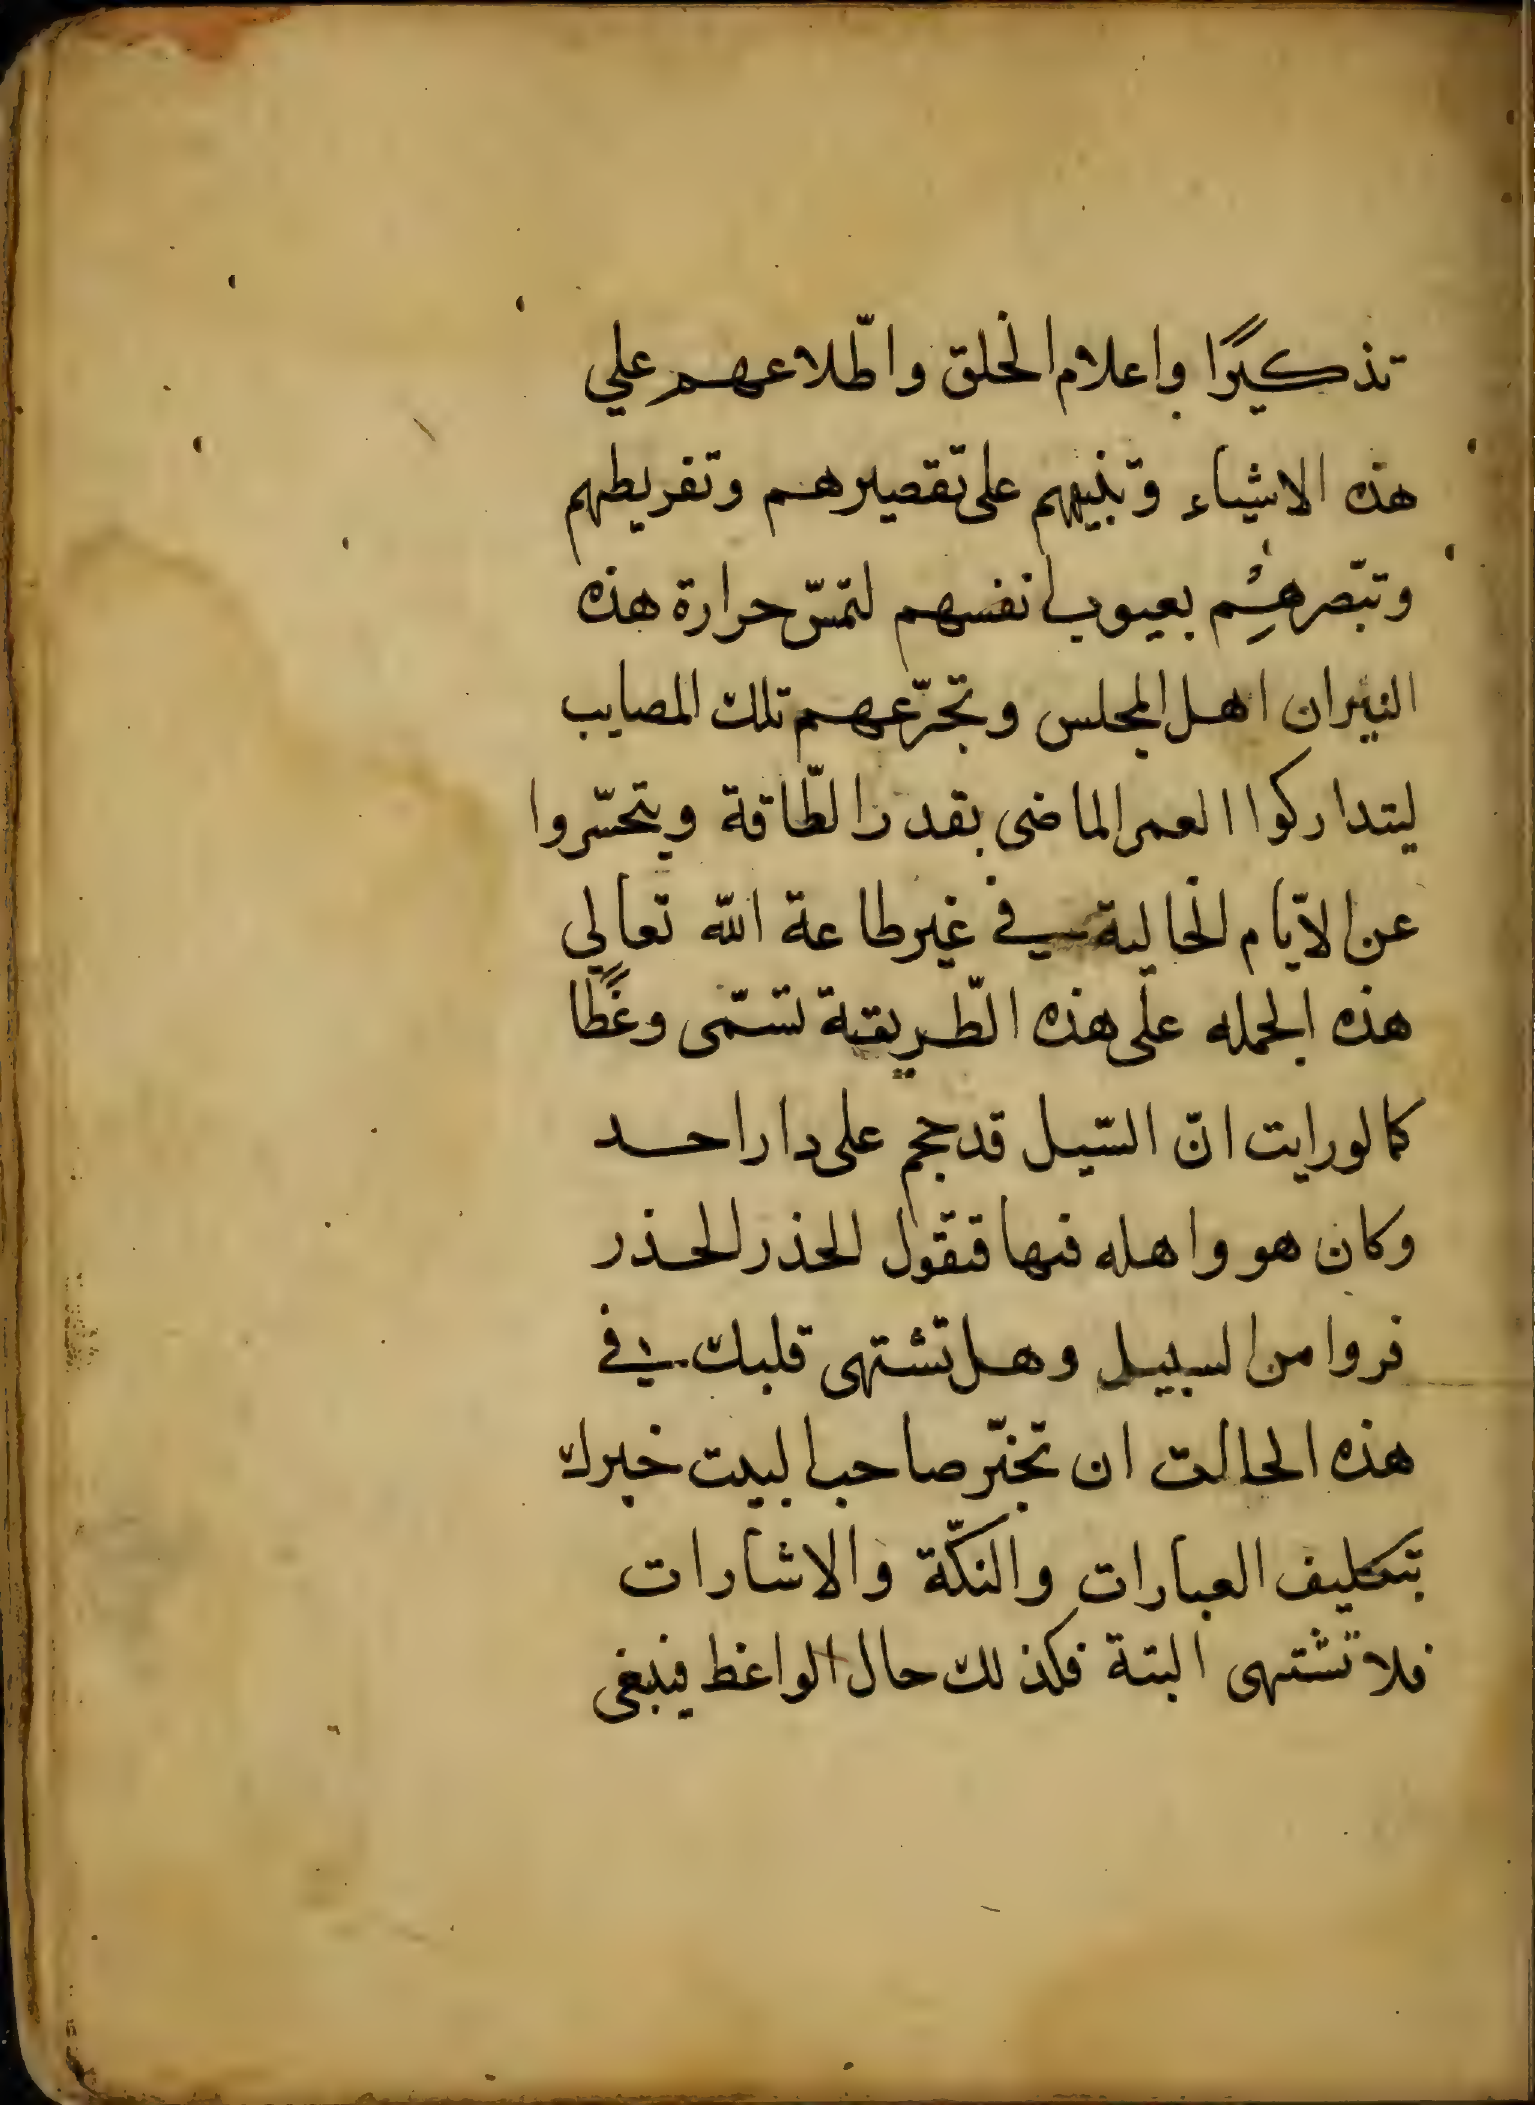 تذكيرًا واعلام الخلق واطّلاعهم علي
هذه الاشياء وتنبيههم على تقصيرهم وتفريطهم
وتبّصرهم بعيوب انفسهم لتمسّ حرارة هذه
النيران اهل المجلس وتجرّعهم تلك المصايب
ليتداركوا العمر الماضى بقدر الطّاقة ويتحسّروا
عن الايّام الخالية في غير طاعة الله تعالي
هذه الجمله على هذه الطّريقة تسمّى وعظًا
كما لو رايت انّ السّيل قد هجم على دار احد
وكان هو واهله فيها فتقول الحذر الحذر
فروا من السبيل وهل تشتهى قلبك في
هذه الحالت ان تخبّر صاحب البيت خبرك
بتكليف العبارات والنكّة والاشارات
فلا تشتهى البتة فكذلك حال الواعظ فينبغى